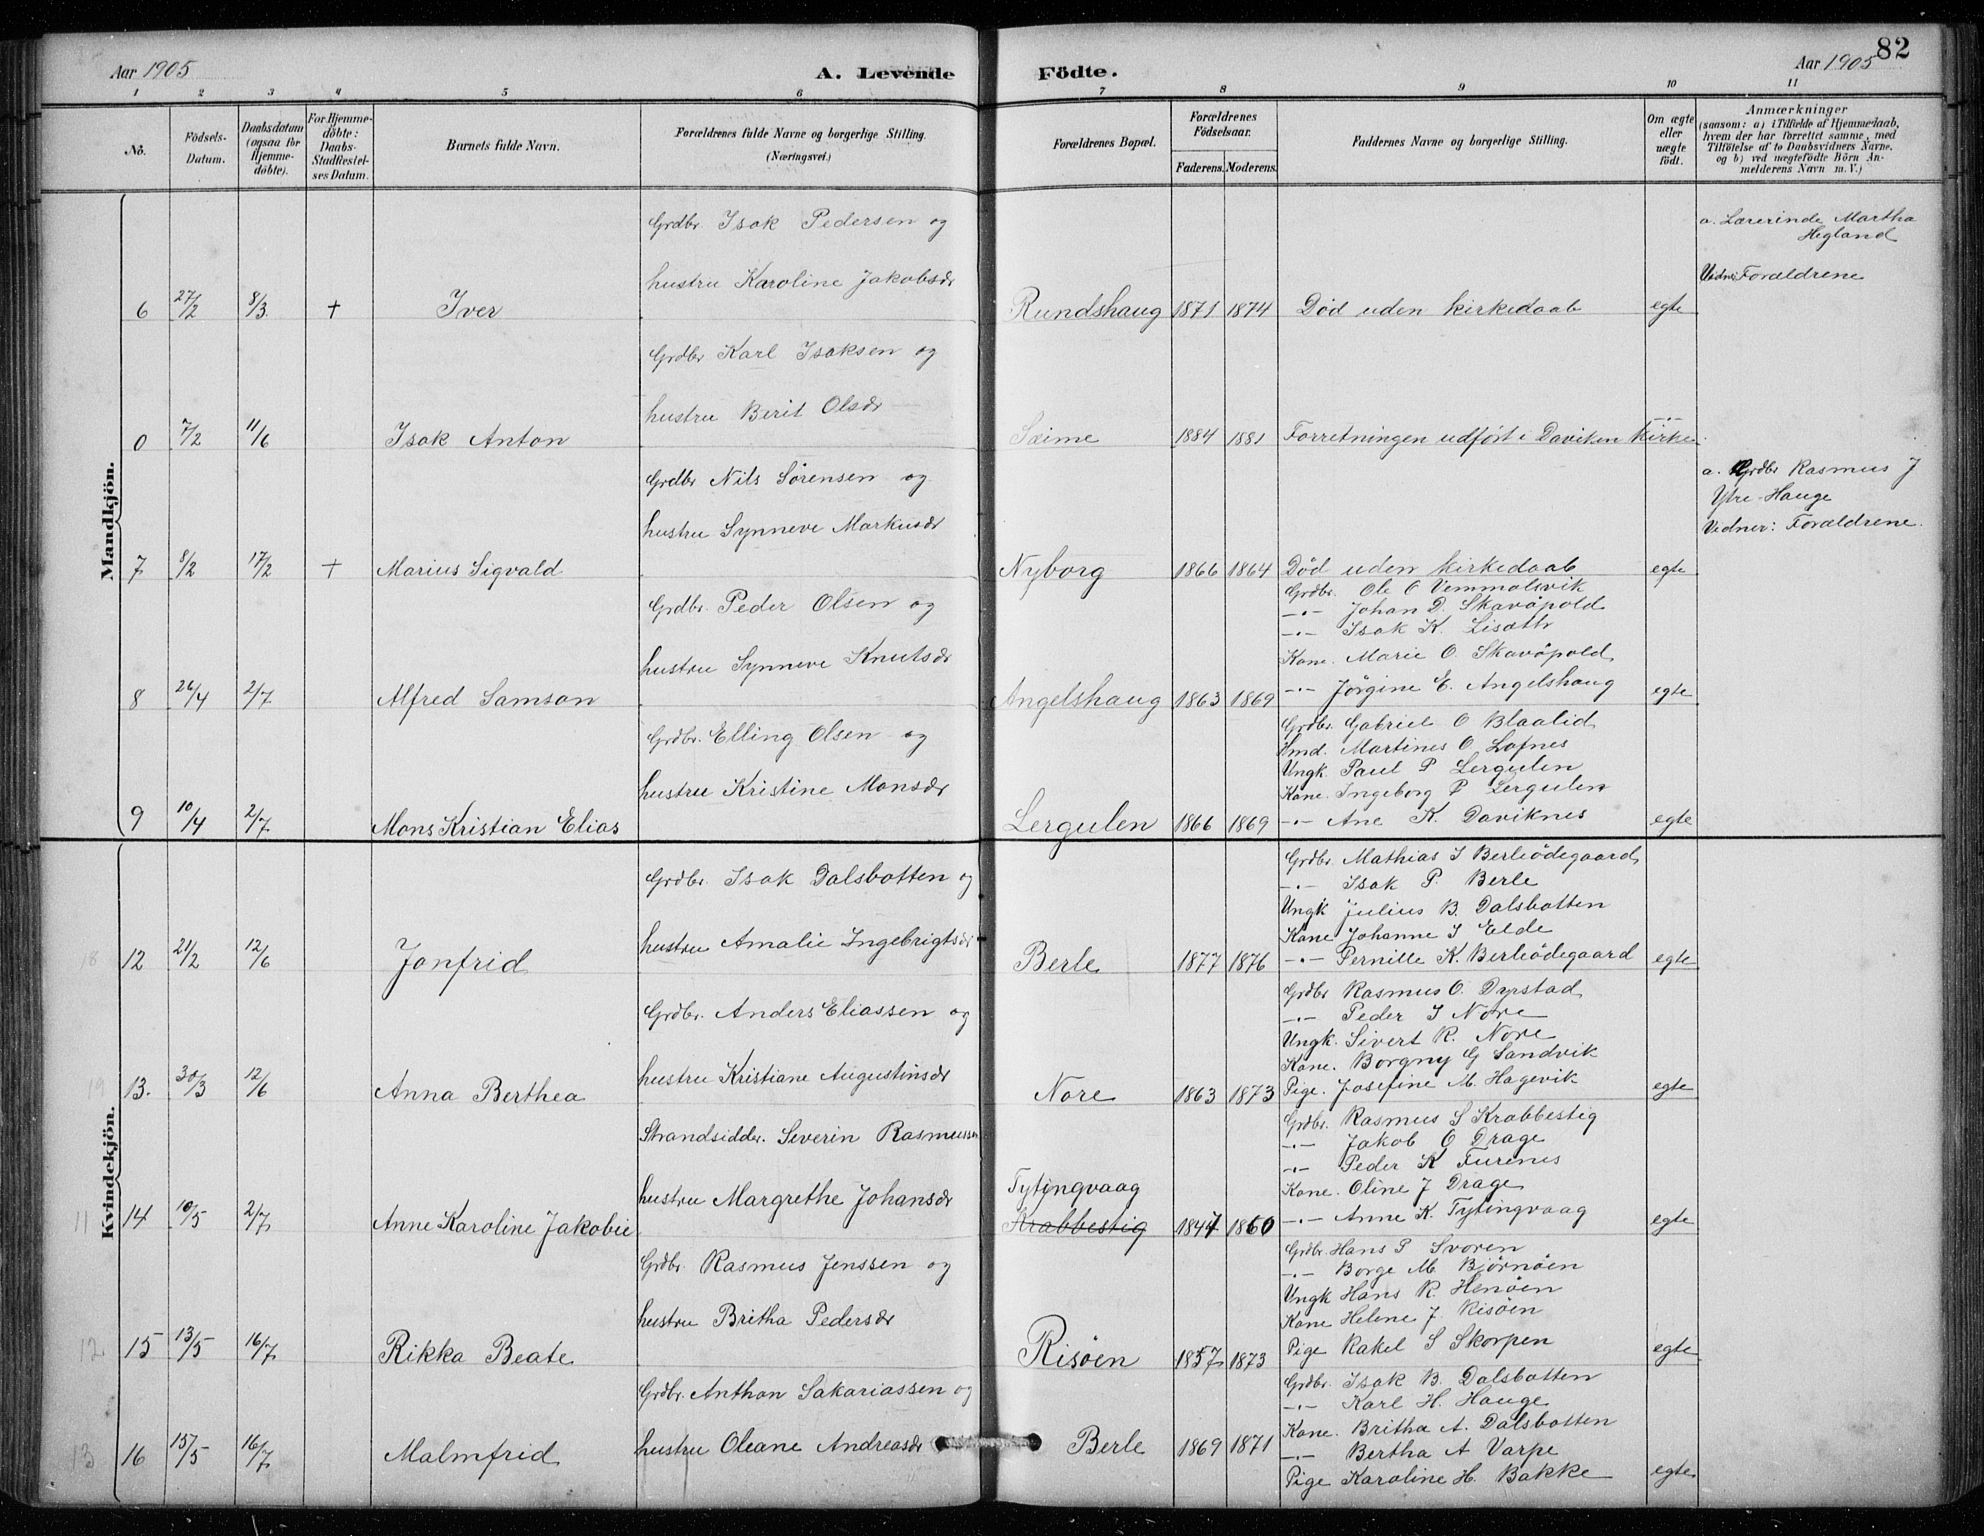 Aar 1905
A. Levende Födte.
Aar 1905
82
1 2 3 4 5 6 7 8 9 10 11
No.
Födsels-Datum.
Daabsdatum (ogsaa for Hjemme-döbte).
For Hjemme-döbte: Daabs-Stadfæstel-ses Datum.
Barnets fulde Navn.
Forældrenes fulde Navne og borgerlige Stilling. (Næringsvei.)
Forældrenes Bopæl.
Forældrenes Födselsaar.
Faderens. Moderens.
Faddernes Navne og borgerlige Stilling.
Om ægte eller uægte födt.
Anmærkninger
(saasom: a) i Tilfælde af Hjemmedaab, hvem der har forrettet samme, med Tilföielse af to Daabsvidners Navne. og b) ved uægtefödte Börn An-melderens Navn m. V.)
Mandkjön.
Grdbr. Isak Pedersen og
hustru Karoline Jakobsdr
6 27/2 8/3 + Iver
Rundshaug 1871 1874 Død uden kirkedaab egte
a. Lærerinde Martha
Hegland
Vidner Forældrene
Grdbr Karl Isaksen og
hustru Berit Olsdr
0 7/2 11/6 Isak Anton
Sæime 1884 1881 Forretningen udført i Daviken Kirke
Grdbr Nils Sørensen og
hustru Synneve Markusdr
7 8/2 17/2 + Marius Sigvald
Nyborg 1866 1864 Død uden kirkedaab egte
a. Grdbr Rasmus J
Ytre-Hauge
Vidner: Forældrene.
Grdbr. Peder Olsen og
hustru Synneve Knutsdr
8 26/4 2/7 Alfred Samson
Angelshaug 1863 1869 egte
Grdbr. Ole O Vemmolsvik
-"- Johan D. Skavöpold
-"- Isak K. Lisæth
Kone. Marie O. Skavöpold
-"- Jørgine E. Angelshaug
Grdbr. Elling Olsen og
hustru Kristine Monsdr
9 10/4 2/7 Mons Kristian Elias
Lergulen 1866 1869 egte
Grdbr. Gabriel O Blaalid
Hmd. Martines O. Lofnes
Ungk. Paul P Lergulen
Kone. Ingeborg P Lergulen
-"- Ane K. Daviknes
Kvindekjön.
Grdbr. Isak Dalsbotten og
hustru Amalie Ingebrigtsdr
18 12 21/2 12/6 Jonfrid
Berle 1877 1876 egte
Grdbr. Mathias I Berleödegaard
-"- Isak P. Berle
Ungk Julius B. Dalsbotten
Kone Johanne I Elde
-"- Pernille K. Berleödegaard
Grdbr. Anders Eliassen og
hustru Kristiane Augustinsdr
19 13. 30/3 12/6 Anna Berthea
Nore 1863 1873 egte
Grdbr Rasmus O. Dyrstad
-"- Peder I Nore
Ungk. Sivert R. Nore
Kone. Borgny G Sandvik
Pige. Josefine M. Hagevik
Strandsidder. Severin Rasmussen
hustru Margrethe Johansdr
11 14 10/5 2/7 Anne Karoline Jakobie
Tytingvaag
Krabbestig 1847 1860 egte
Grdbr. Rasmus S Krabbestig
-"- Jakob O Drage
-"- Peder K Furenes
Kone. Oline J Drage
-"- Anne K. Tytingvaag
Grdbr. Rasmus Jenssen og
hustru Britha Pedersdr
12 15 13/5 16/7 Rikka Beate
Risöen 1857 1873 egte
Grdbr. Hans P Svoren
-"- Borge M. Björnöen
Ungk Hans R Henöen
Kone Helene J Risöen
Pige Rakel S Skorpen
Grdbr. Anthon Sakariassen og
hustru Oleane Andreasdr
13 16 15/5 16/7 Malmfrid
Berle 1869 1871 egte
Grdbr. Isak B. Dalsbotten
-"- Karl H. Hauge
Kone. Britha A. Dalsbotten
-"- Bertha A Varpe
Pige Karoline H. Bakke